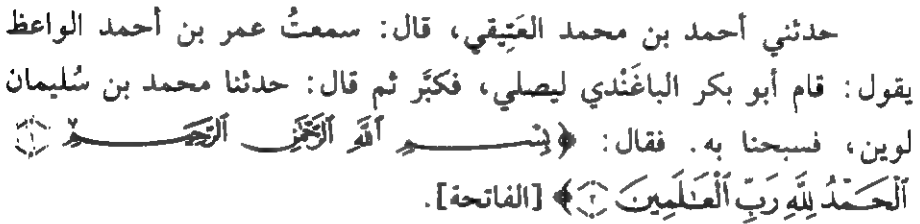 حدثني أحمد بن محمد العَتِيقي، قال: سمعتُ عمر بن أحمد الواعظ
يقول: قام أبو بكر الباغَنْدي ليصلي، فكبَّر ثم قال: حدثنا محمد بن سُليمان
لوين، فسبحنا به. فقال: ﴿بِسْمِ ٱللَّهِ ٱلرَّحْمَٰنِ ٱلرَّحِيمِ ۝١
ٱلْحَمْدُ لِلَّهِ رَبِّ ٱلْعَٰلَمِينَ ۝٢﴾ [الفاتحة].